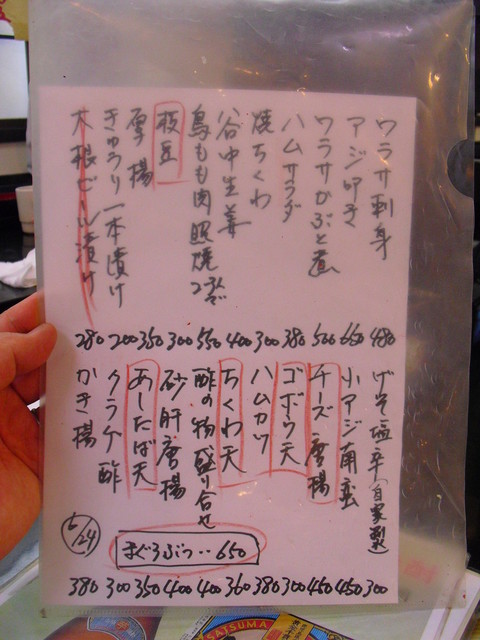 ワラサ刺身 480
アジ叩き 650
ワラサかぶと煮 500
ハムサラダ 380
焼ちくわ 300
谷中生姜 400
鳥もも肉照焼 550
枝豆 300
厚揚 350
きゅうり一本漬け 200
大根ビール漬け 280
げそ塩辛(自家製) 300
小アジ南蛮 450
チーズ唐揚 450
ゴボウ天 300
ハムカツ 380
ちくわ天 360
酢の物盛り合せ 400
砂肝唐揚 400
あしたば天 350
クラゲ酢 300
かき揚 380
まぐろぶつ‥650
6/24
SATSUMA